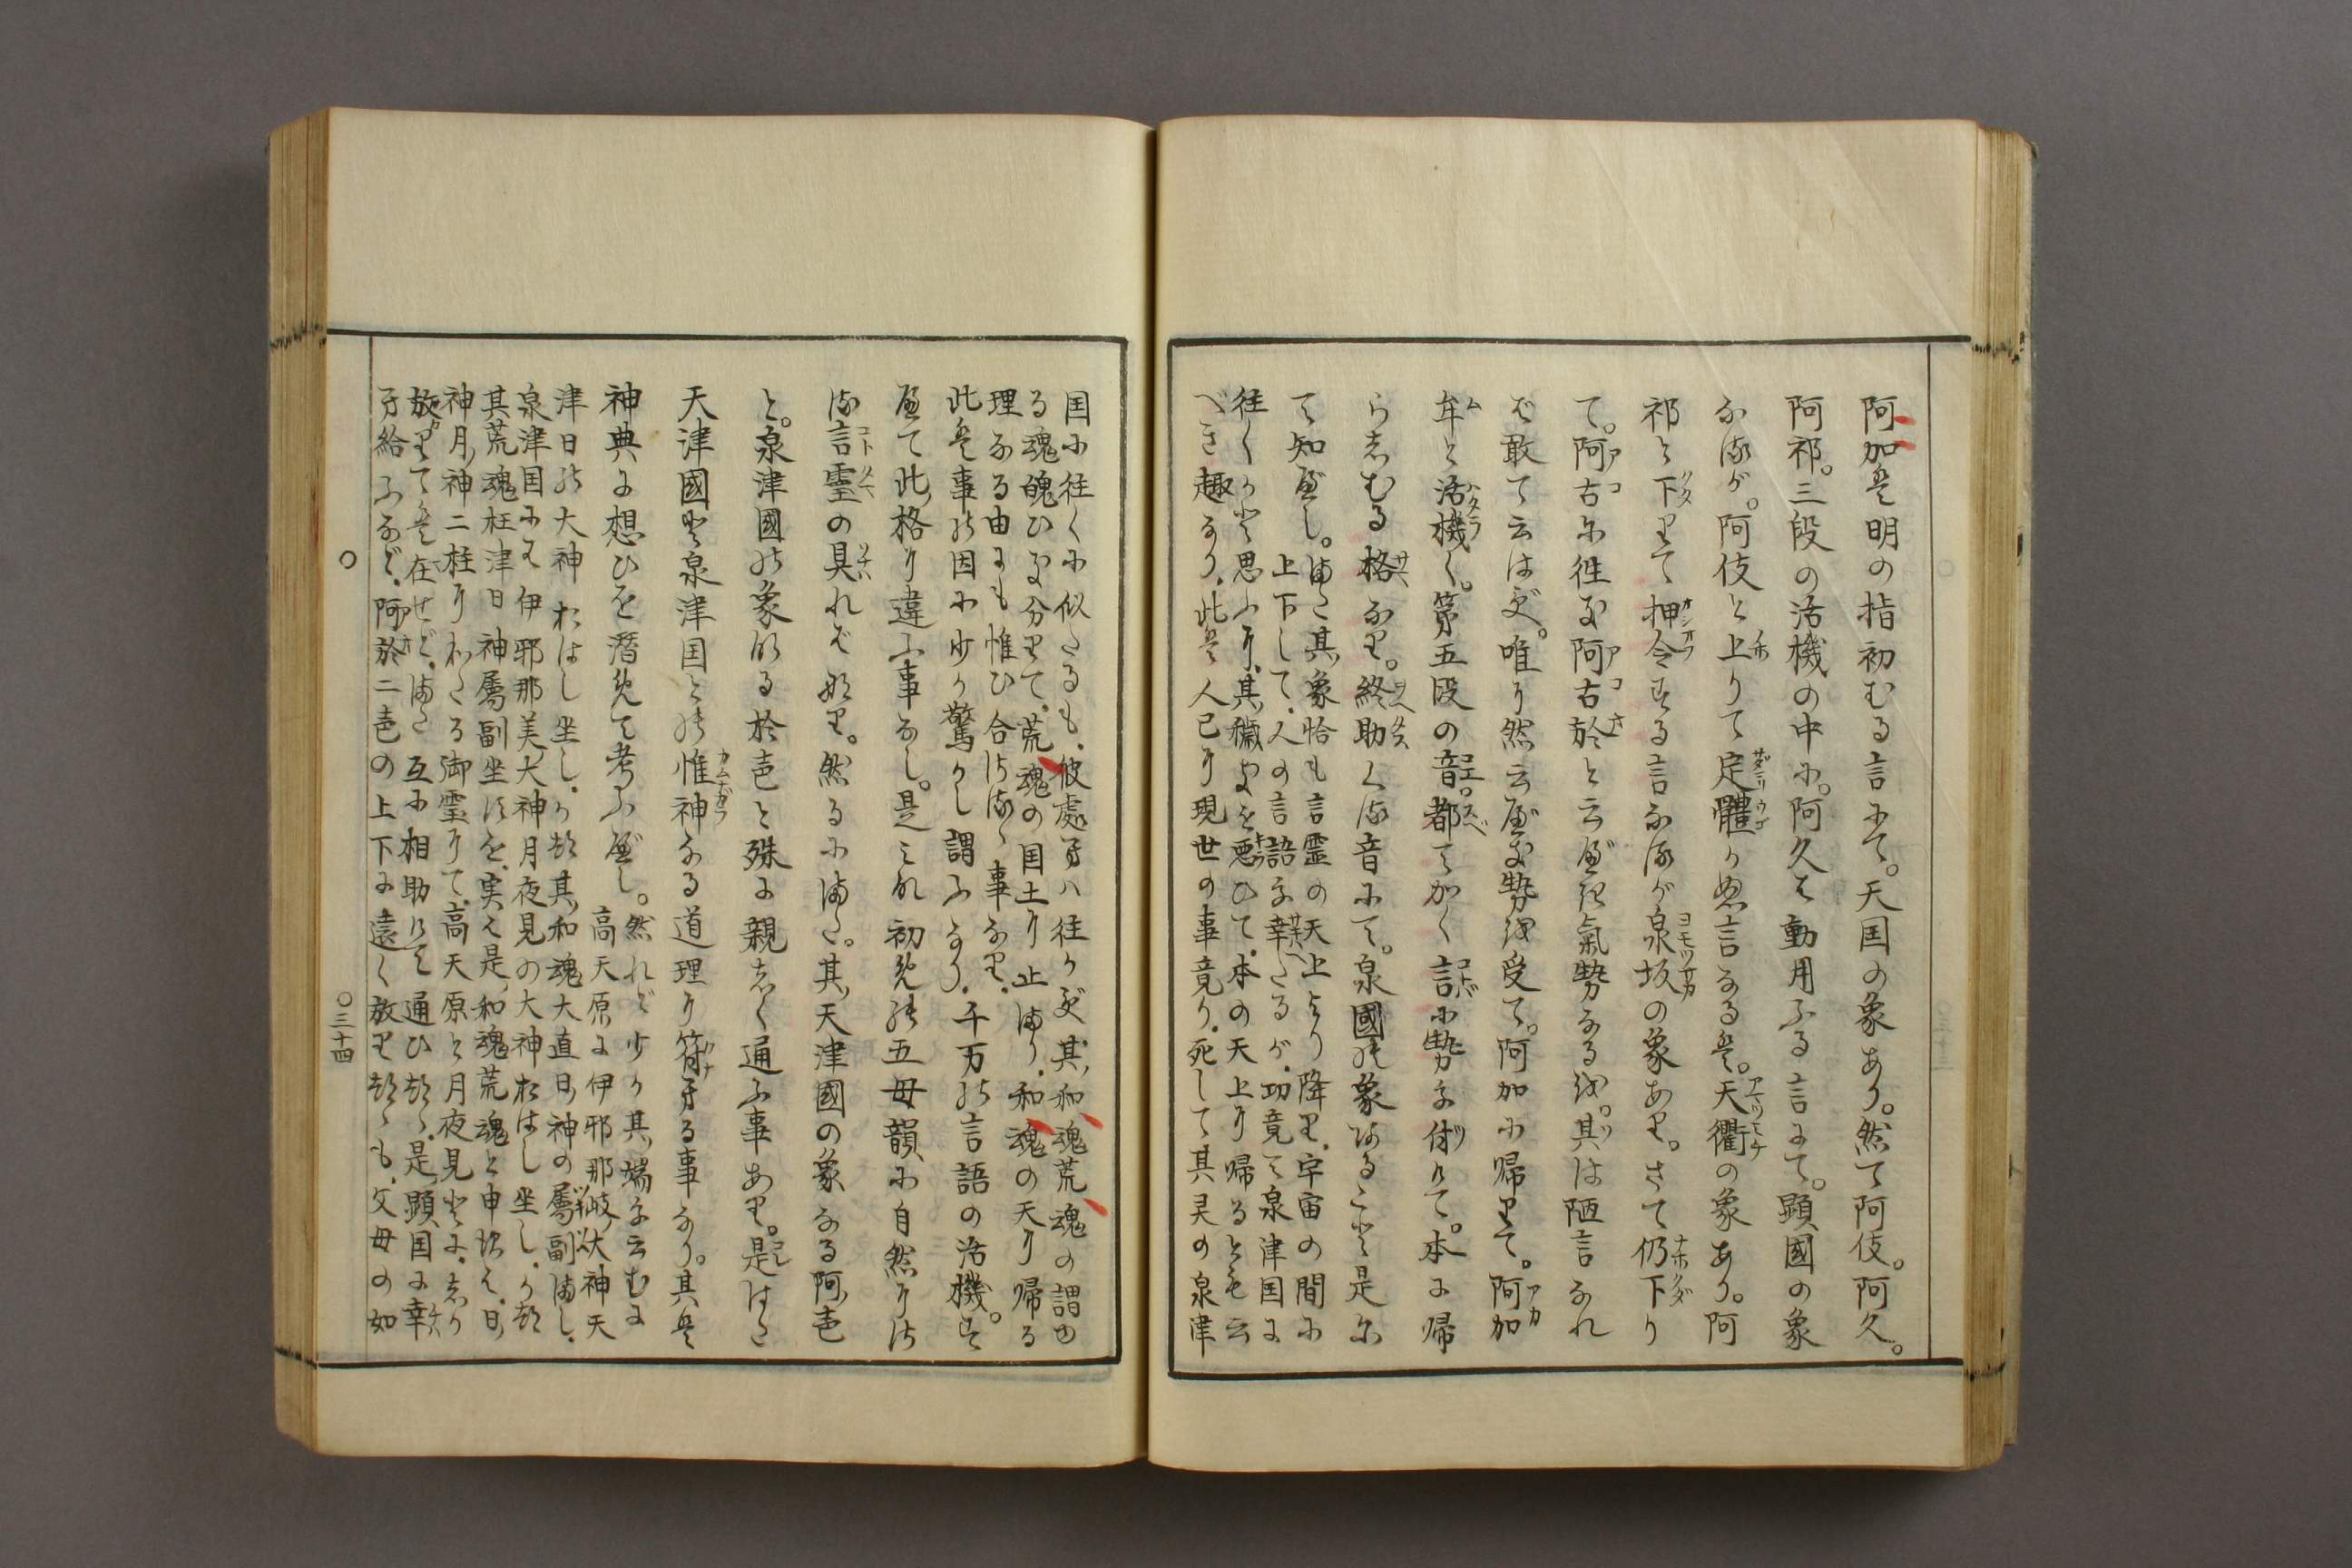 阿加は明の指初むる言にて。天国の象あり。然て阿伎。阿久。
阿祁。三段の活機の中に。阿久は動用ふる言にて。顕國の象
なるが。阿伎と上りて定體りぬ言なるは。天衢の象あり。阿
祁と下りて押令する言なるが泉坂の象あり。さて仍下り
て。阿古に徃り阿古於と云べき氣勢なるを。其は陋言なれ
ば敢て云はず。唯り然云べき勢を受て。阿加に帰りて。阿加
牟と活機く。第五段の音都て如く言に勢を付けて。本に帰
らしむる格なり。終助くる音にて。泉國の象なること是に
て知べし。
また其象恰も言霊の天上より降り。宇宙の間に
上下して。人の言語を幸たるが。功竟て泉津国に
往くかと思ふに。其穢きを悪ひて。本の天上り帰るとも云
べき趣なり。此は人已に現世の事竟り。死して其灵の泉津
国に往くに似たるも。彼處には往かず。其和魂荒魂の謂ゆ
る魂魄ひに分りて。荒魂の国土に止まり。和魂の天に帰る
理なる由にも惟ひ合はさる事なり。
此は事の因に少か驚かし謂ふなり。千万の言語の活機。す
べて此格に違ふ事なし。是これ初発の五母韻に自然りけ
る言霊の具れば也。然るにまた。其天津國の象なる阿声
と。泉津國の象なる於声と殊に親しく通ふ事あり。是はた
天津國と泉津国との惟神なる道理に符へる事なり。其は
神典に想ひを潜めて考ふべし。
然れど少か其端を云むに
高天原に伊邪那岐大神天
津日の大神おはし坐し。かつ其和魂大直日神の属副まし。
泉津国には伊邪那美大神月夜見の大神おはし坐し。かつ
其荒魂枉津日神属副坐すを。実は是和魂荒魂と申せば。日
神月神二柱にわたる御霊にて。高天原と月夜見とに。しか
放りては在せど。また互に相助けて通ひつつ。是顕国に幸
へ給ふなど。阿於二声の上下に遠く放りつつも。父母の如
〇
〇三十四